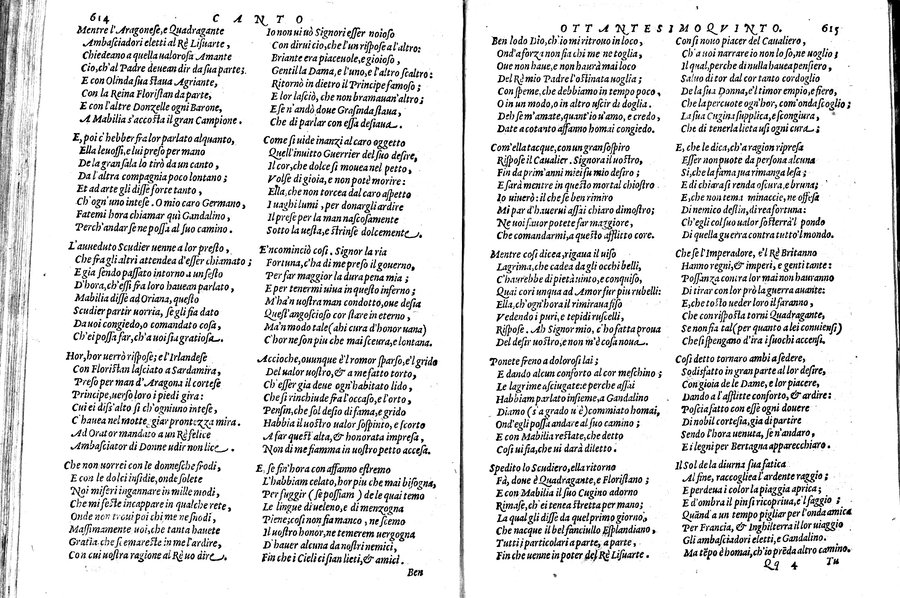 614 CANTO
Mentre l'Aragonese, e Quadragante
Ambasciadori eletti al Rè Lisuarte,
Chiedeano a quella ualorosa Amante
Cio, ch'al Padre deuean dir da sua parte;
E con Olinda staua Agriante,
Con la Reina Floristan da parte,
E con l'altre Donzelle ogni Barone,
A Mabilia s'accosta il gran Campione.
E, poi c'hebber fra lor parlato alquanto,
Ella leuossi, e lui preso per mano
De la gran sala lo tirò da un canto,
Da l'altra compagnia poco lontano;
Et ad arte gli disse forte tanto,
Ch'ognuno intese. O mio caro Germano,
Fatemi hora chiamar quì Gandalino,
Perch'andar se ne possa al suo camino.
L'aueduto Scudier uenne a lor presto,
Che fra gli altri attendea d'esser chiamato;
E gia sendo passato intorno a
D'hora, ch'essi fra loro hauean parlato,
Mabilia disse ad Oriana, questo
Scudier partir uorria, se gli fia dato
Da uoi congiedo, o comandato cosa,
Ch'ei possa far, ch'a uoi sia gratiosa.
Hor, hor uerrò rispose; e l'Irlandese
Con Floristan lasciato a Sardamira,
Preso per man d'Aragona il cortese
Principe, uerso loro i piedi gira:
Cui ei diss'alto sì ch'ogniuno intese,
C'hauea nel motteggiar prontezza mira.
Ad Orator mandato a un Rè felice
Ambasciator di Donne udir non lice.
Che non uorrei con le donnesche frodi,
E con le dolci insidie, onde solete
Noi miseri ingannare in mille modi,
Che mi feste incappare in qualche rete,
Onde non troui poi chi me ne snodi,
Massimamente uoi, che tanta hauete
Gratia, che se amareste in me l'ardire,
Con cui uostra ragione al Rè uo dire.
Io non ui uò Signori esser noioso
Con dirui cio, che l'un rispose a l'altro:
Briante era piaceuole, e gioioso,
Gentil la Dama, e l'uno, e l'altro scaltro:
Ritornò in dietro il Principe famoso;
E lor lasciò, che non bramauan'altro;
E se n'andò doue Grasinda staua,
Che di parlar con essa desiaua.
Come si uide inanzi al caro oggetto
Quell'inuitto Guerrier del suo desire,
Il cor, che dolce si mouea nel petto,
Volse di gioia, e non potè morire:
Ella, che non torcea dal caro aspetto
I uaghi lumi, per donargli ardire
Il prese per la man nascosamente
Sotto la uesta, e strinse dolcemente.
E'ncominciò così. Signor la ria
Fortuna, c'ha di me preso il gouerno,
Per far maggior la dura pena mia;
E per tenermi uiua in questo inferno;
M'ha'n uostra man condotto, oue desia
Quest'angoscioso cor stare in eterno,
Ma'n modo tale (ahi cura d'honor uana)
C'hor ne son piu che mai scura, e lontana.
Accioche, ouunque è'l romor sparso, e'l grido
Del ualor uostro, & a me fatto torto,
Ch'esser gia deue ogn'habitato lido,
Che si rinchiude fra l'occaso, e l'orto,
Pensin, che sol desio di fama, e grido
Habbia il uostro ualor sospinto, e scorto
A far quest'alta, & honorata impresa,
Non di me fiamma in uostro petto accesa.
E, se fin'hora con affanno estremo
L'habbiam celato, hor piu che mai bisogna,
Per fuggir (se possiam) de le quai temo
Le lingue di ueleno, e di menzogna
Piene; così non fia manco, ne scemo
Il uostro honor, ne temerem uergogna
D'hauer alcuna da nostri nemici,
Fin che i Cieli ci sian lieti, & amici.
Ben
OTTANTESIMOQVINTO. 615
Ben lodo Dio, ch'io mi ritrouo in loco,
Ond'a forza non fia chi me ne toglia,
Oue non haue, e non haurà mai loco
Del Rè mio Padre l'ostinata uoglia;
Con speme, che debbiamo in tempo poco,
O in un modo, o in altro uscir di doglia.
Deh se m'amate, quant'io u'amo, e credo,
Date a costato affanno homai congiedo.
Com'ella tacque, con un gran sospiro
Rispose il Caualier. Signora il uostro,
Fin da prim'anni miei fu mio desiro;
E sarà mentre in questo mortal chiostro
Io uiuerò: il che se ben rimiro
Mi par d'hauerui assai chiaro dimostro;
Ne uoi fauor potete far maggiore,
Che comandarmi, a questo afflitto core.
Mentre così dicea, rigaua il uiso
Lagrima, che cadea da gli occhi belli,
C'haurebbe di pietà uinto, e conquiso,
Quai cori unqua ad Amor fur piu rubelli:
Ella, ch'ogn'hora il rimiraua fiso
Vedendo i puri, e tepidi ruscelli,
Rispose. Ah Signor mio, c'ho fatta proua
Del desir uostro, e non m'è cosa noua.
Ponete freno a dolorosi lai;
E dando alcun conforto al cor meschino;
Le lagrime asciugate: perche assai
Habbiam parlato insieme, a Gandalino
Diamo (s'a grado u'è) commiato homai,
Ond'egli possa andare al suo camino;
E con Mabilia restate, che detto
Così ui fia, che ui darà diletto.
Spedito lo Scudiero, ella ritorno
Fà, doue è Quadragante, e Floristano;
E con Mabilia il suo Cugino adorno
Rimase, ch'ei tenea stretta per mano;
La qual gli disse da quel primo giorno,
Che nacque il bel fanciullo Esplandiano,
Tutti i particolari a parte, a parte,
Fin che uenne in poter del Rè Lisuarte.
Con sì nouo piacer del Caualiero,
Ch'a uoi narrare io non lo sò, ne uoglio;
Il qual, perche di nulla hauea pensiero,
Saluo di tor dal cor tanto cordoglio
De la sua Donna, e'l timor empio, e fiero,
Che la percuote ogn'hor, com'onda scoglio;
La sua Cugina supplica, e scongiura,
Che di tenerla lieta usi ogni cura;
E, che le dica, ch'a ragion ripresa
Esser non puote da persona alcuna
Sì, che la fama sua rimanga lesa;
E di chiara si renda oscura, e bruna;
E, che non tema minaccie, ne offesa
Di nemico destin, di rea fortuna:
Ch'egli col suo ualor sosterrà'l pondo
Di quella guerra contra tutto'l mondo.
Che se l'Imperadore, e'l Rè Britanno
Hanno regni, & imperi, e genti tante:
Possanza contra lor mai non hauranno
Di tirar con lor prò la guerra auante:
E, che tosto ueder loro il faranno,
Che con risposta torni Quadragante,
Se non fia tal (per quanto a lei conuiensi)
Che si spengano d'ira i suochi accensi.
Così detto tornaro ambi a sedere,
Sodisfatto in gran parte al lor desire,
Con gioia de le Dame, e lor piacere,
Dando a l'afflitte conforto, & ardire:
Poscia fatto con esse ogni douere
Di nobil cortesia, gia di partire
Sendo l'hora uenuta, se n'andaro,
E i legni per Bertagna apparecchiaro.
Il Sol de la diurna sua fatica
Al fine, raccogliea l'ardente raggio;
E perdeua i color la piaggia aprica;
E d'ombra il pin si ricopriua, e'l faggio;
Quand'a un tempo pigliar per l'onda amica
Per Francia, & Inghilterra il lor uiaggio
Gli ambasciadori eletti, e Gandalino.
Ma tẽpo è homai, ch'io prẽda altro camino.
Qq 4 Tu